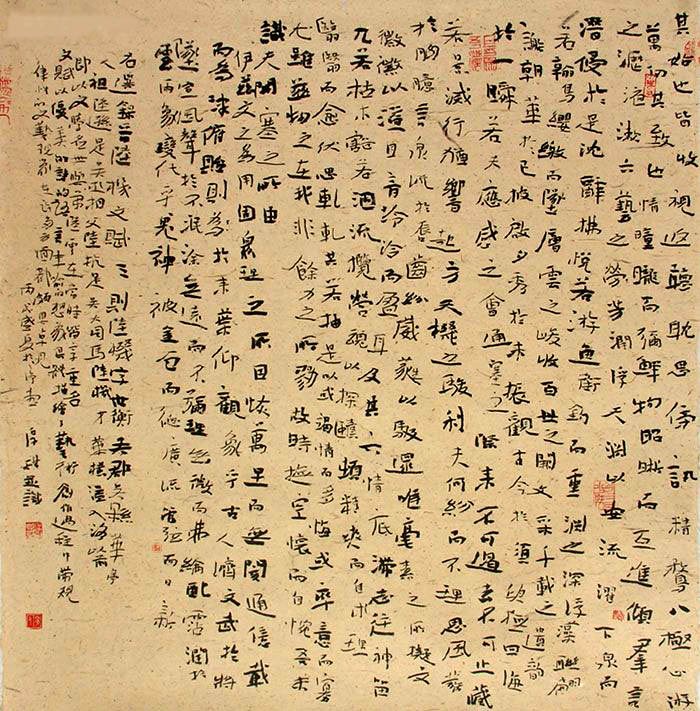 其始也皆收視返聽耽思傍訊精騖八極心游
萬仞其致也情曈曨而彌鮮物昭晰而互進傾群言
之瀝液漱六藝之芳潤浮天淵以安流濯下泉而
潛侵於是沈辭怫悅若游魚銜鉤而重淵之深浮藻聯翩
若翰鳥纓繳而墜層雲之峻收百世之闕文采千載之遺韻
謝朝華於已披啟夕秀於未振觀古今於須臾撫四海
於一瞬若夫應感之會通塞之際來不可遏去不可止藏
若景滅行猶響起方天機之駿利夫何紛而不理思風發
於胸臆言泉流於唇齒紛葳蕤以馺遝唯毫素之所擬文
徽徽以溢目音泠泠而盈耳及其六情底滯志往神留
兀若枯木豁若涸流攬營魂以探賾頓精爽而自求理
翳翳而愈伏思軋軋其若抽是以或竭情而多悔或率意而寡
尤雖茲物之在我非餘力之所勠故時撫空懷而自惋吾未
識夫開塞之所由
伊茲文之為用固眾理之所因恢萬里而無閡通億載
而為津俯貽則於來葉仰觀象乎古人濟文武於將
墜宣風聲於不泯塗無遠而不彌理無微而弗綸配霑潤於
雲雨象變化乎鬼神被金石而德廣流管弦而日新
右選錄晉陸機文賦三則陸機字世衡吳郡吳縣華亭
人祖陸遜是吳丞相父陸抗是吳大司馬陸機才華橫溢入洛以前
即以文學名世與弟陸雲
文賦以優美的
丙戌盛夏於